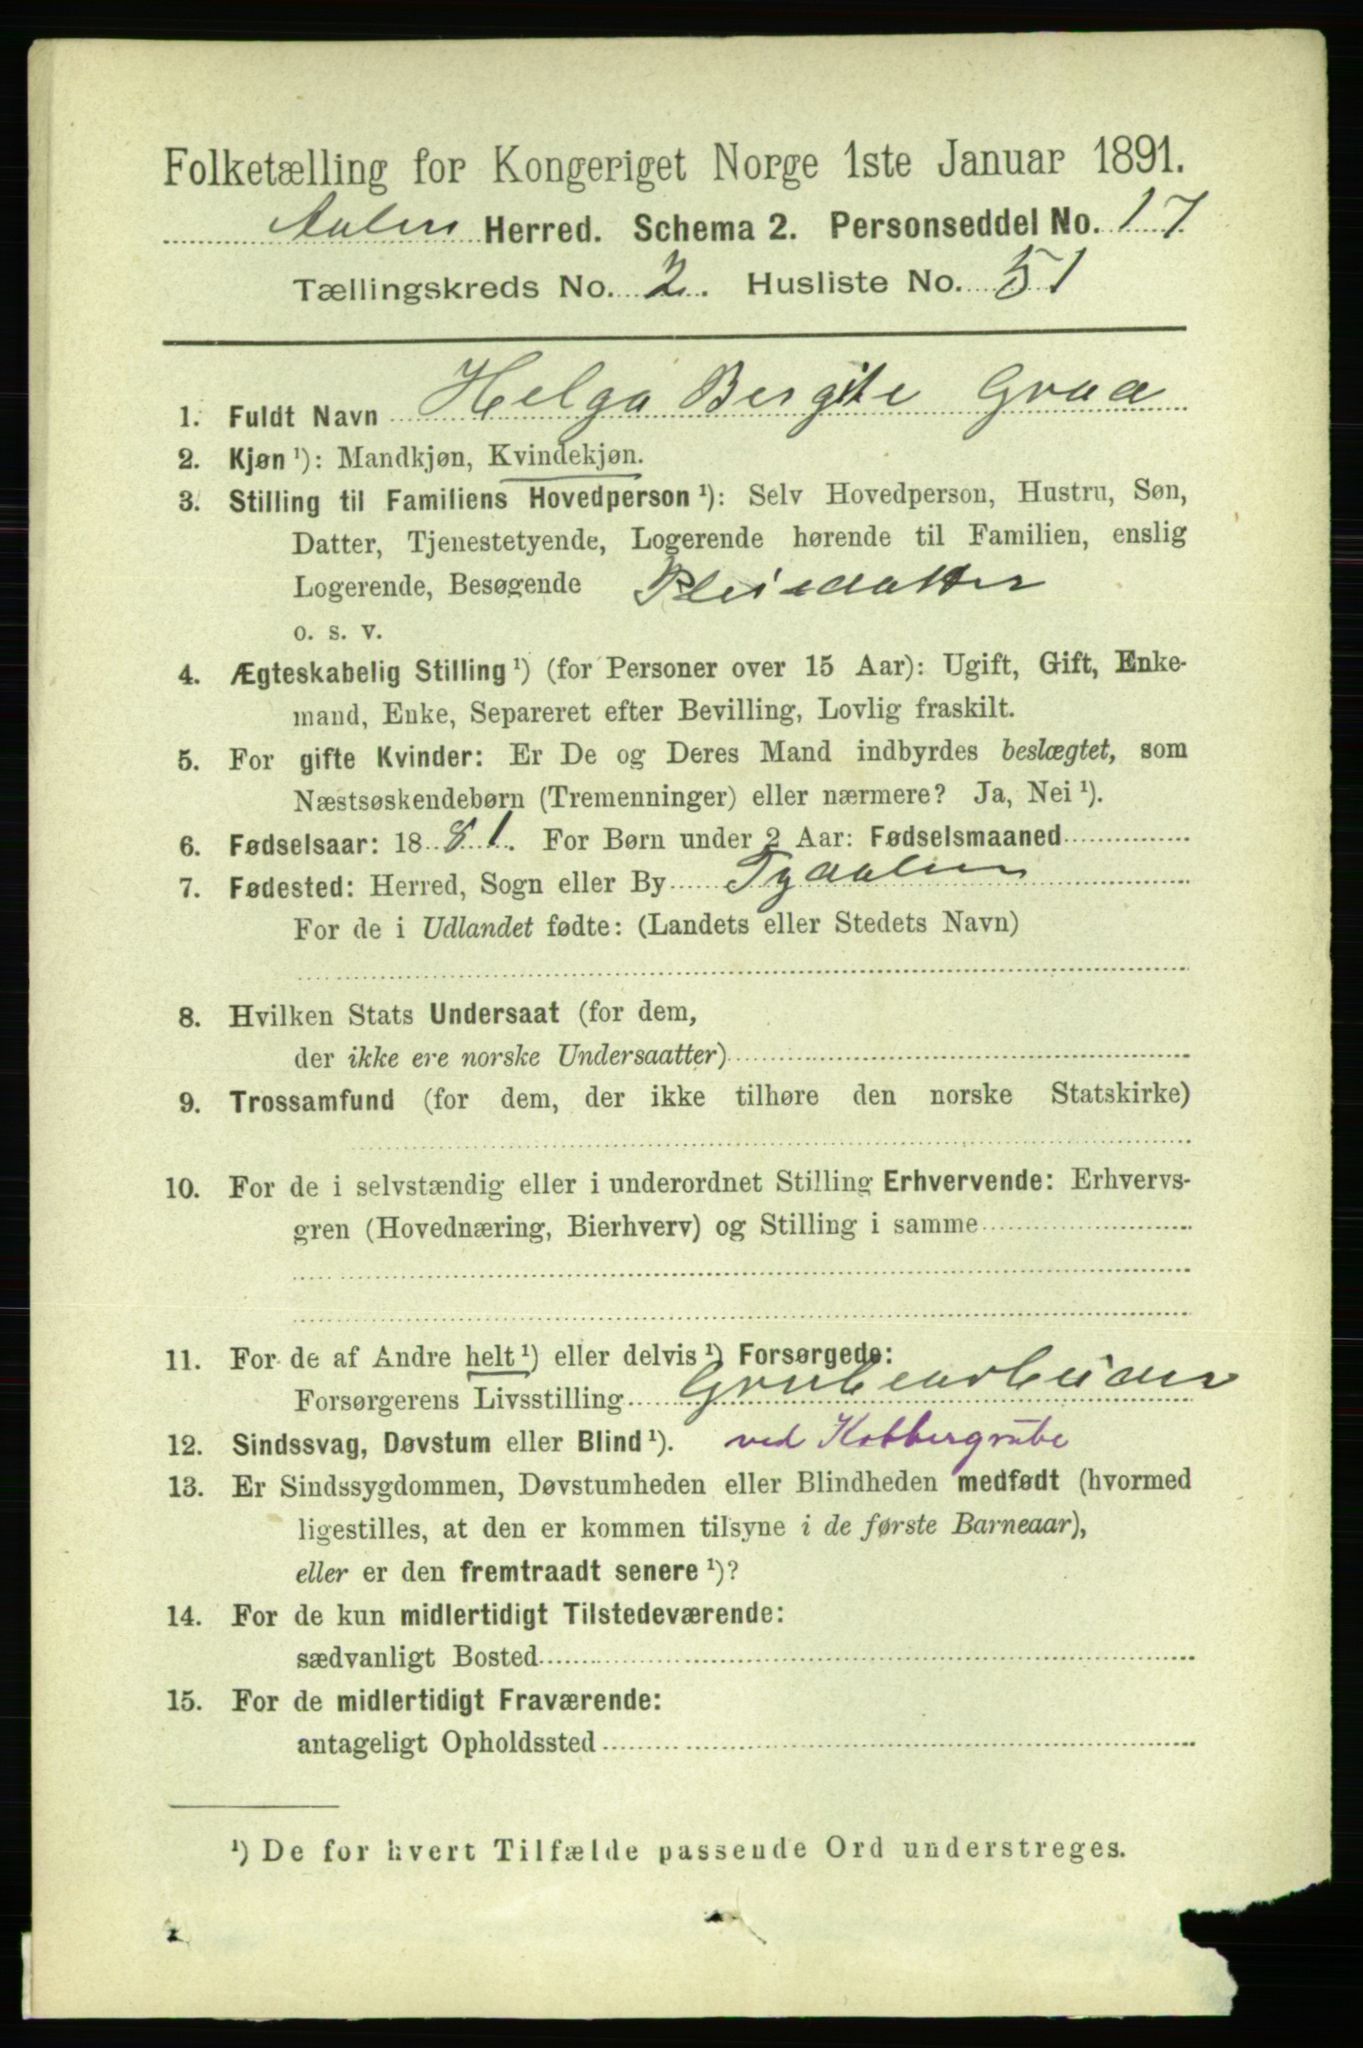 Folketælling for Kongeriget Norge 1ste Januar 1891.
Aalen Herred. Schema 2. Personseddel No. 17
Tællingskreds No. 2. Husliste No. 51
1. Fuldt Navn Helga Bergite Graa
2. Kjøn ¹): Mandkjøn, Kvindekjøn.
3. Stilling til Familiens Hovedperson ¹): Selv Hovedperson, Hustru, Søn,
Datter, Tjenestetyende, Logerende hørende til Familien, enslig
Logerende, Besøgende Pleiedatter
o. s. v.
4. Ægteskabelig Stilling ¹) (for Personer over 15 Aar): Ugift, Gift, Enke-
mand, Enke, Separeret efter Bevilling, Lovlig fraskilt.
5. For gifte Kvinder: Er De og Deres Mand indbyrdes beslægtet, som
Næstsøskendebørn (Tremenninger) eller nærmere? Ja, Nei ¹).
6. Fødselsaar: 1881. For Børn under 2 Aar: Fødselsmaaned
7. Fødested: Herred, Sogn eller By
For de i Udlandet fødte: (Landets eller Stedets Navn)
8. Hvilken Stats Undersaat (for dem,
der ikke ere norske Undersaatter)
9. Trossamfund (for dem, der ikke tilhøre den norske Statskirke)
10. For de i selvstændig eller i underordnet Stilling Erhvervende: Erhvervs-
gren (Hovednæring, Bierhverv) og Stilling i samme
11. For de af Andre helt ¹) eller delvis ¹) Forsørgede:
Forsørgerens Livsstilling Grubearbeider
12. Sindssvag, Døvstum eller Blind ¹). ved Kobbergrube
13. Er Sindssygdommen, Døvstumheden eller Blindheden medfødt (hvormed
ligestilles, at den er kommen tilsyne i de første Barneaar),
eller er den fremtraadt senere ¹)?
14. For de kun midlertidigt Tilstedeværende:
sædvanligt Bosted
15. For de midlertidigt Fraværende:
antageligt Opholdssted
¹) De for hvert Tilfælde passende Ord understreges.